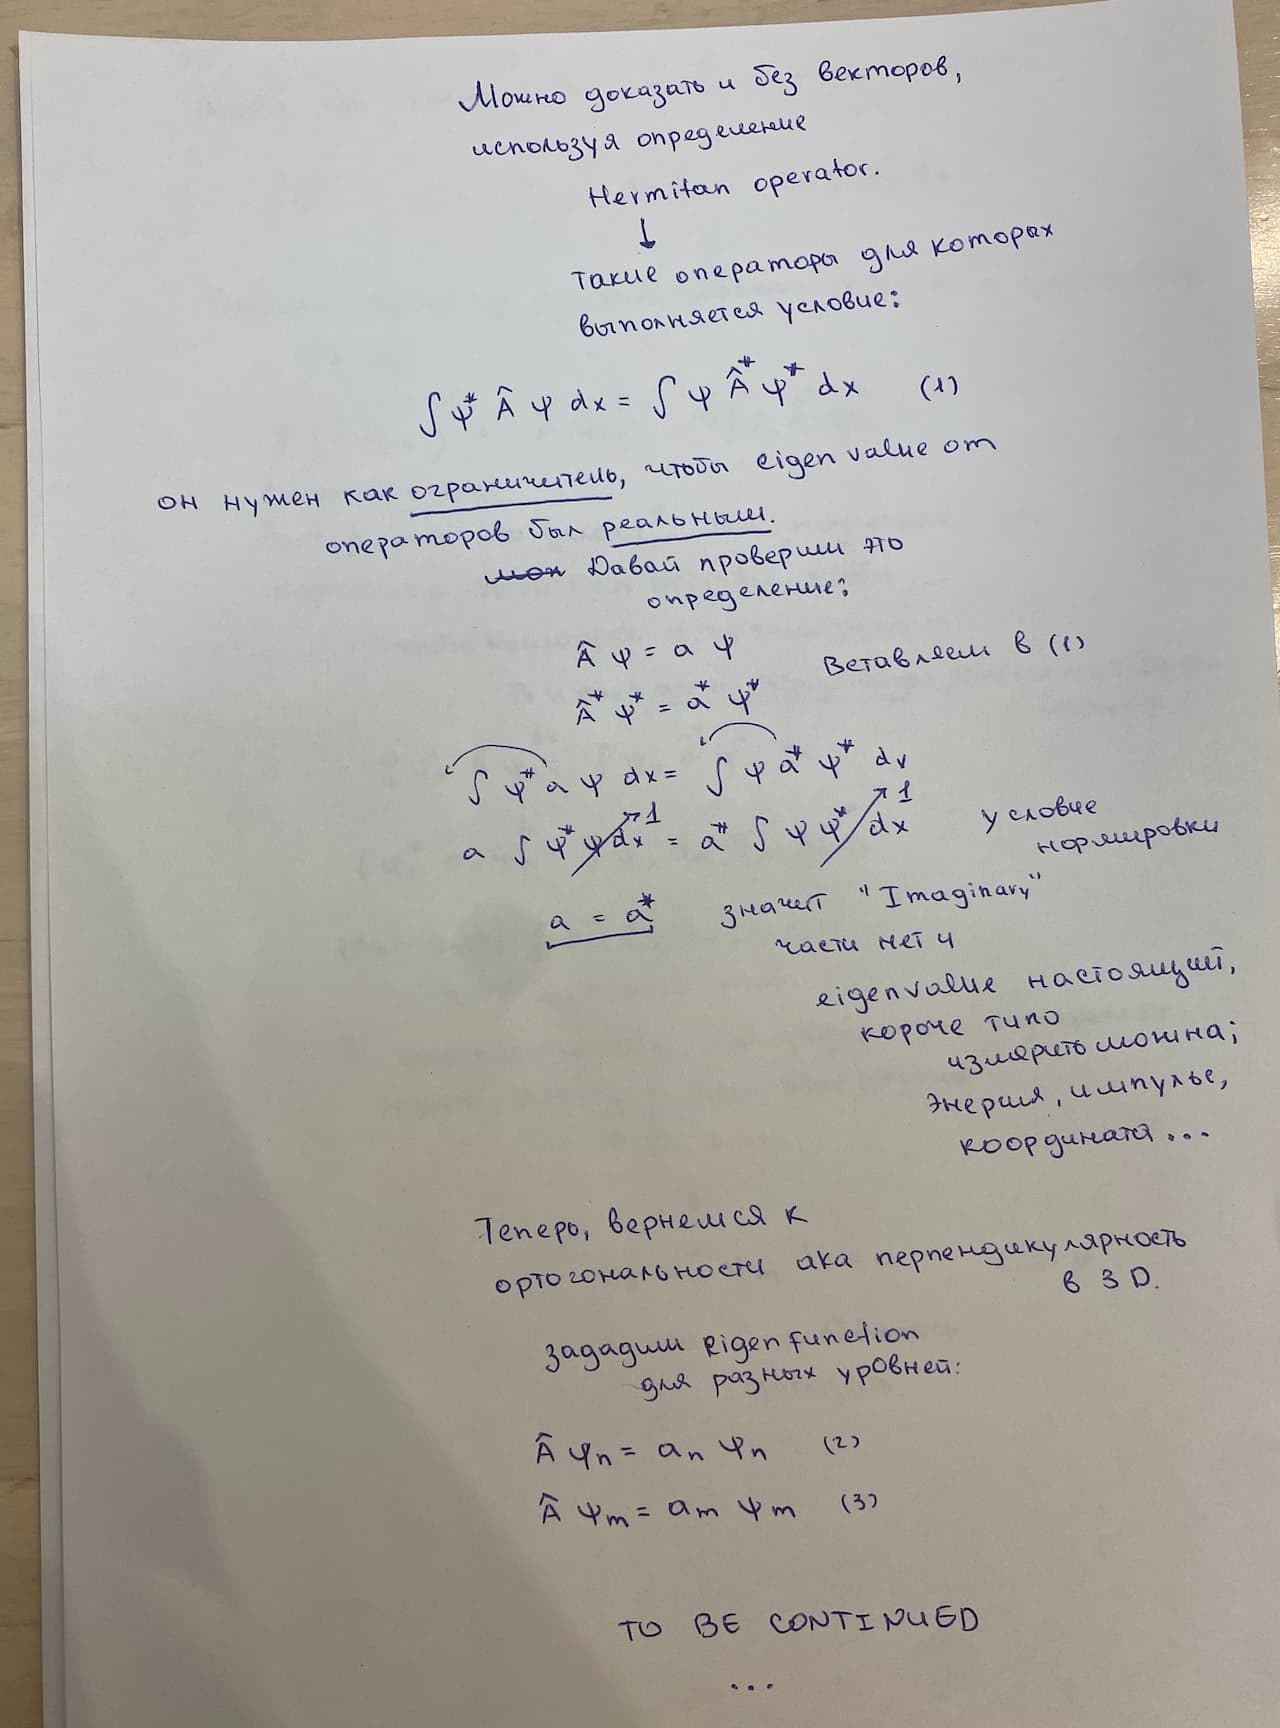 Можно доказать и без векторов,
используя определение
Hermitan operator.
↓
такие операторы для которых
выполняется условие:
∫ ψ* Â ψ dx = ∫ ψ Â* ψ* dx (1)
он нужен как ограничитель, чтобы eigen value от
операторов был реальным.
Давай проверим это
определение:
Â ψ = a ψ
Вставляем в (1)
Â* ψ* = a* ψ*
∫ ψ* a ψ dx = ∫ ψ a* ψ* dx
a ∫ ψ* ψ dx 1 = a* ∫ ψ ψ* dx 1
условие
нормировки
a = a* значит "Imaginary"
части нет и
eigenvalue настоящий,
короче типо
измерить можна;
Энергия, импульс,
координата ...
Теперь, вернемся к
ортогональности ака перпендикулярность
в 3D.
зададим eigen function
для разных уровней:
Â ψn = an ψn (2)
Â ψm = am ψm (3)
TO BE CONTINUED
...